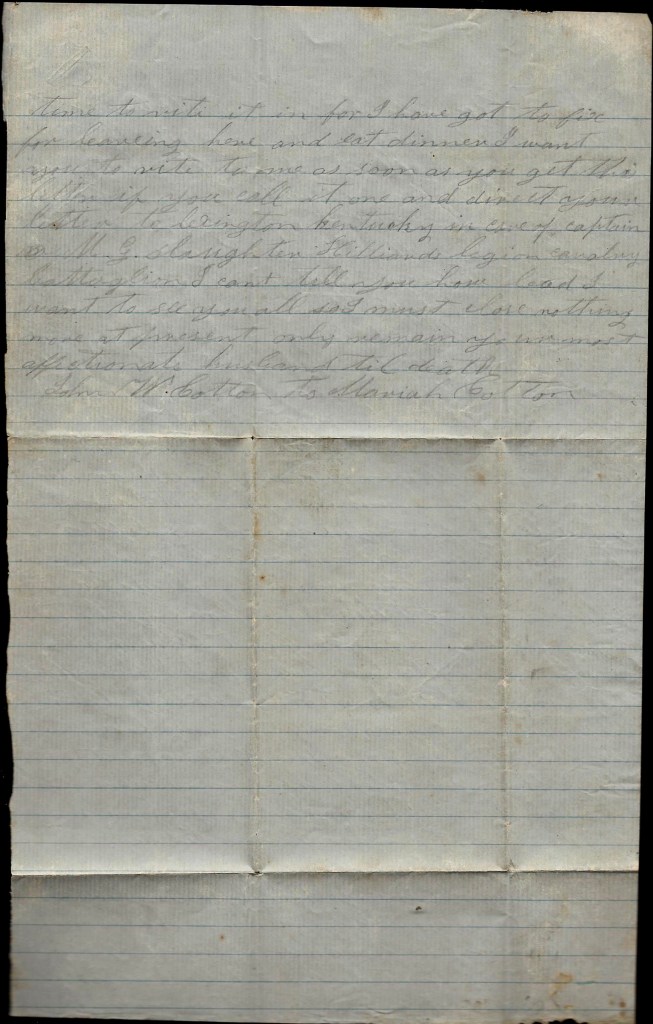 time to rite it in for I have got to fix
for leaveing here and eat dinner I want
you to rite to me as soon as you get this
letter if you call it one and direct your
letter to Lexington Kentucky in care of captain
M. G. Slaughter Hilliards legion cavalry
battaglion I cant tell you how glad I
want to see you all so I must close nothing
more at present only remain your most
affectionate husband til death
John W. Cotton to Mariah Cotton